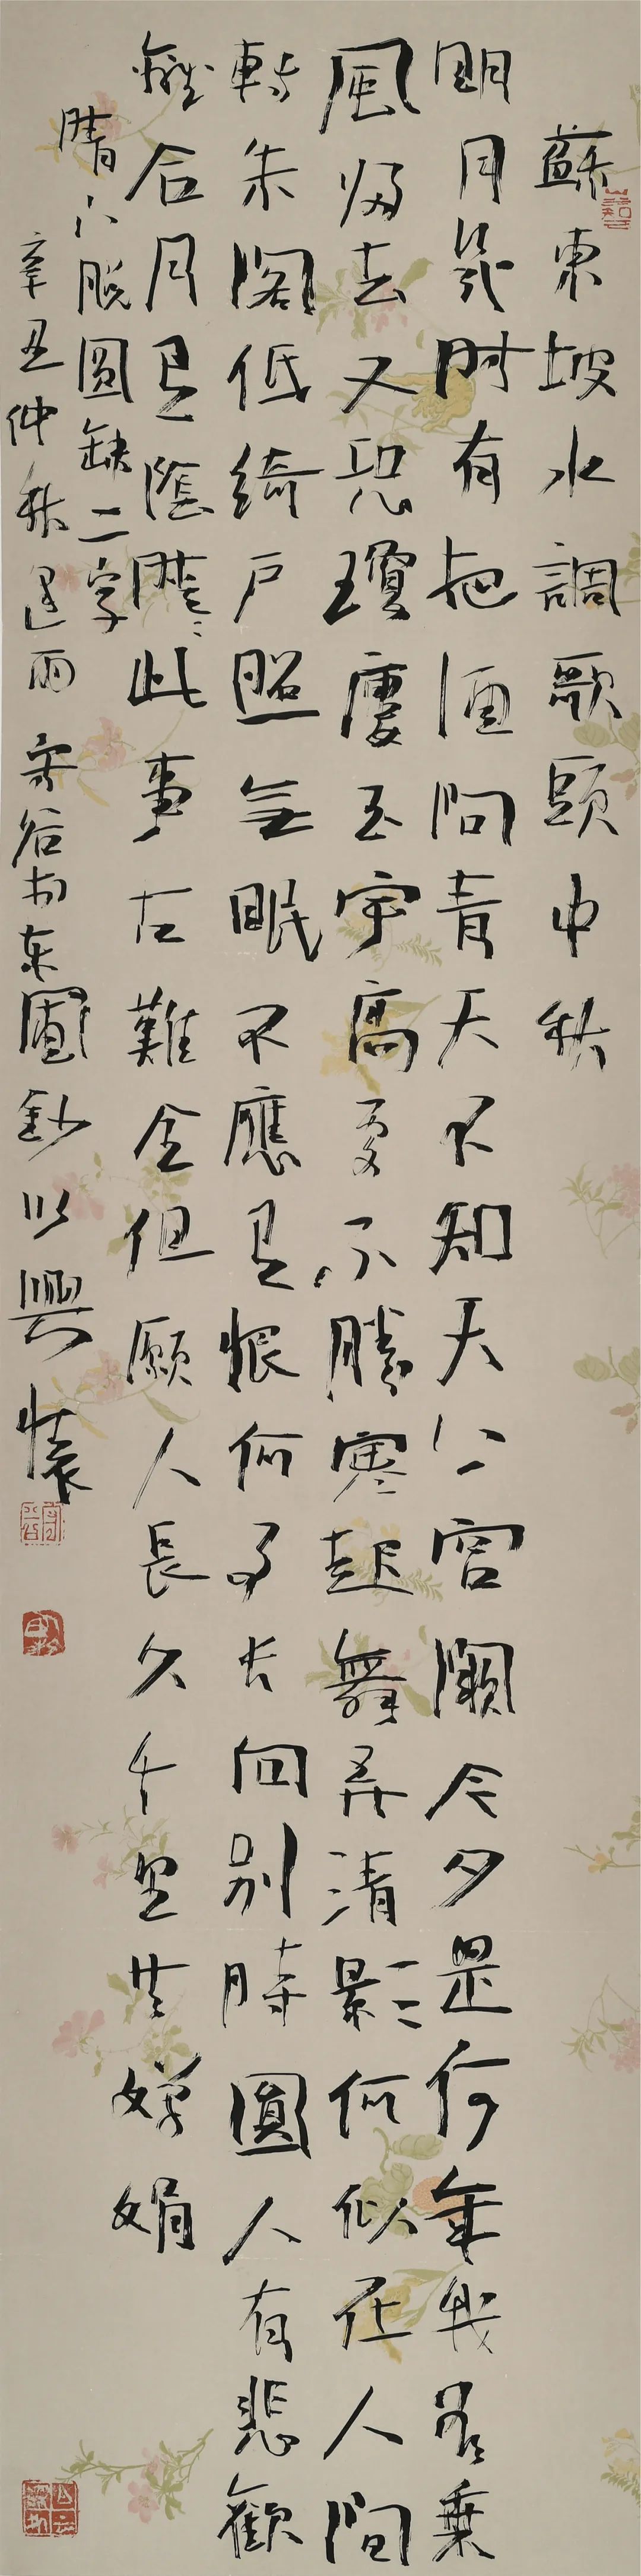 蘇東坡水調歌頭中秋
明月幾时有把酒问青天不知天上宫闕今夕是何年我欲乘
風归去又恐瓊廔玉宇高處不勝寒起舞弄清影何似在人间
轉朱阁低綺户照無眠不應有恨何事长向别時圓人有悲歡
離合月有陰晴此事古難全但願人長久千里共嬋娟
晴下脱圓缺二字
辛丑仲秋遇雨守谷於东圃鈔以興懷